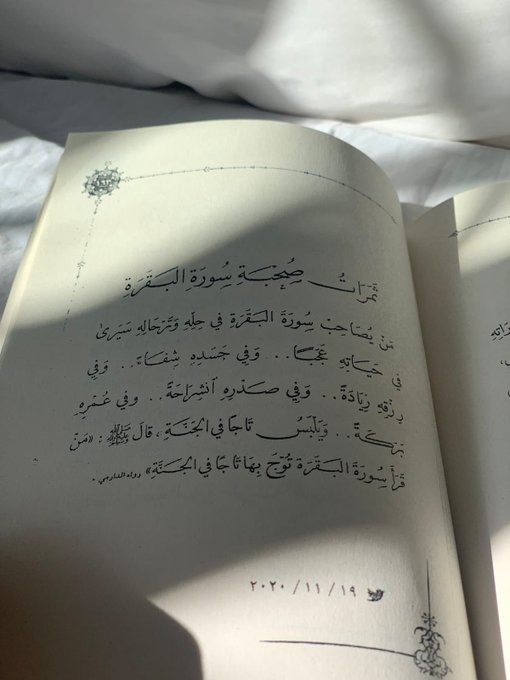 ثَمَرَاتُ صُحْبَةِ سُورَةِ البَقَرَةِ
مَنْ يُصَاحِبْ سُورَةَ البَقَرَةِ في حِلِّهِ وَتَرْحَالِهِ سَيَرىٰ
في حَيَاتِهِ عَجَبًا.. وَفي جَسَدِهِ شِفَاءً.. وَفِي
رِزْقِهِ زِيَادَةً.. وَفِي صَدْرِهِ انْشِرَاحَةً.. وفي عُمْرِهِ
بَرَكَةً.. وَيَلْبَسُ تَاجًا في الجَنَّةِ، قالَ ﷺ: «مَنْ
قَرَأَ سُورَةَ البَقَرَةِ تُوِّجَ بِهَا تَاجًا في الجَنَّةِ» رواه الدارمي.
٢٠٢٠/١١/١٩